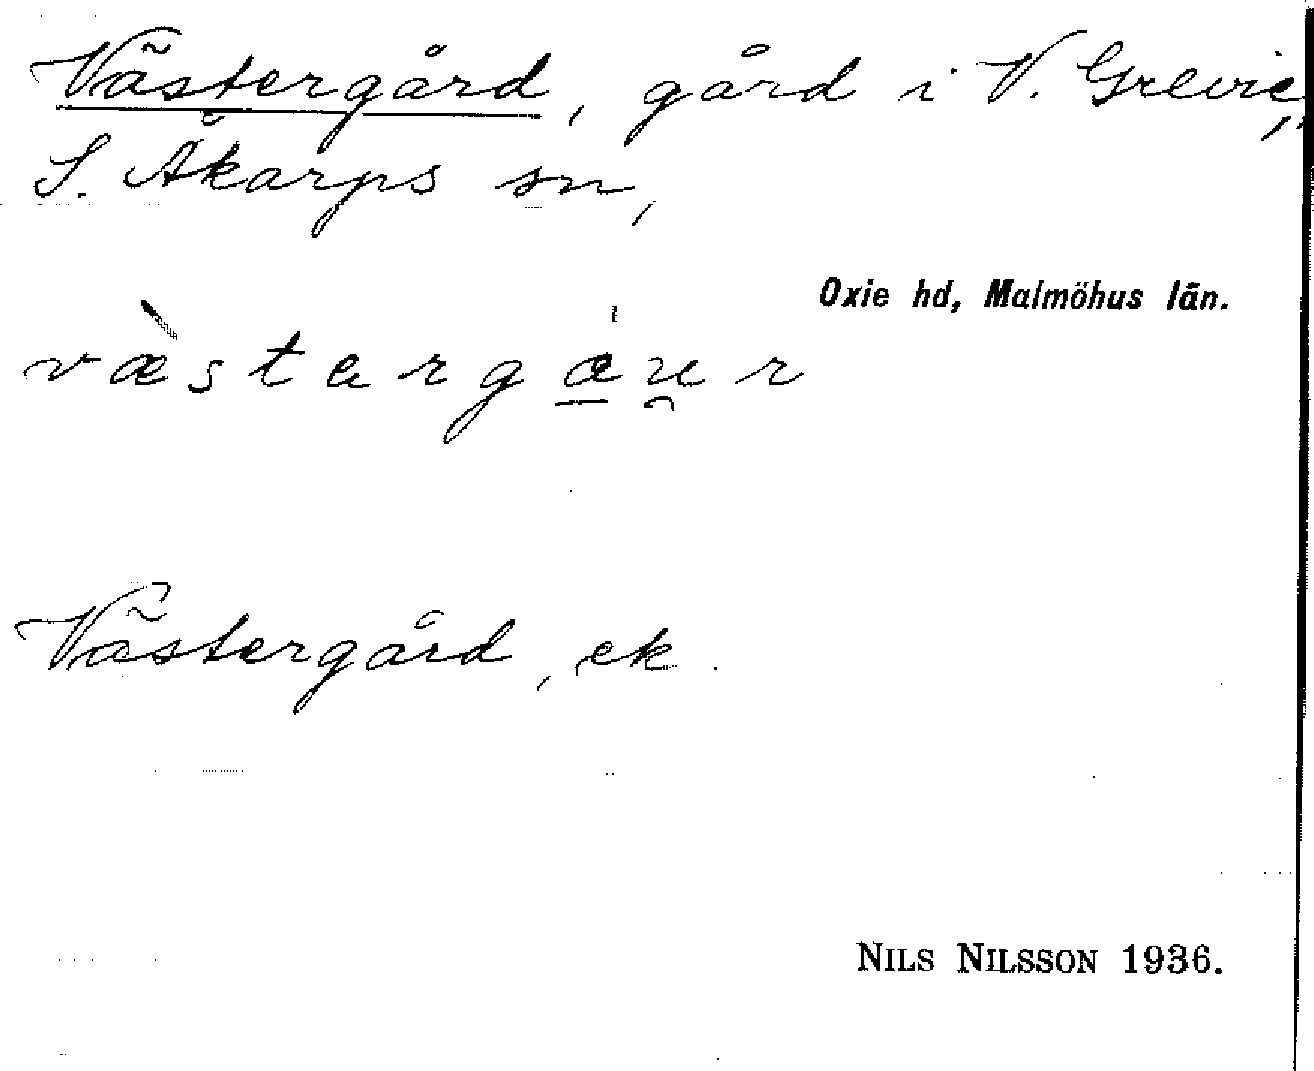 Västergård, gård i V. Grevie,
S. Åkarps sn,
Oxie hd, Malmöhus län.
væ̀stargæ̱u̯r
Västergård, ek.
NILS NILSSON 1936.